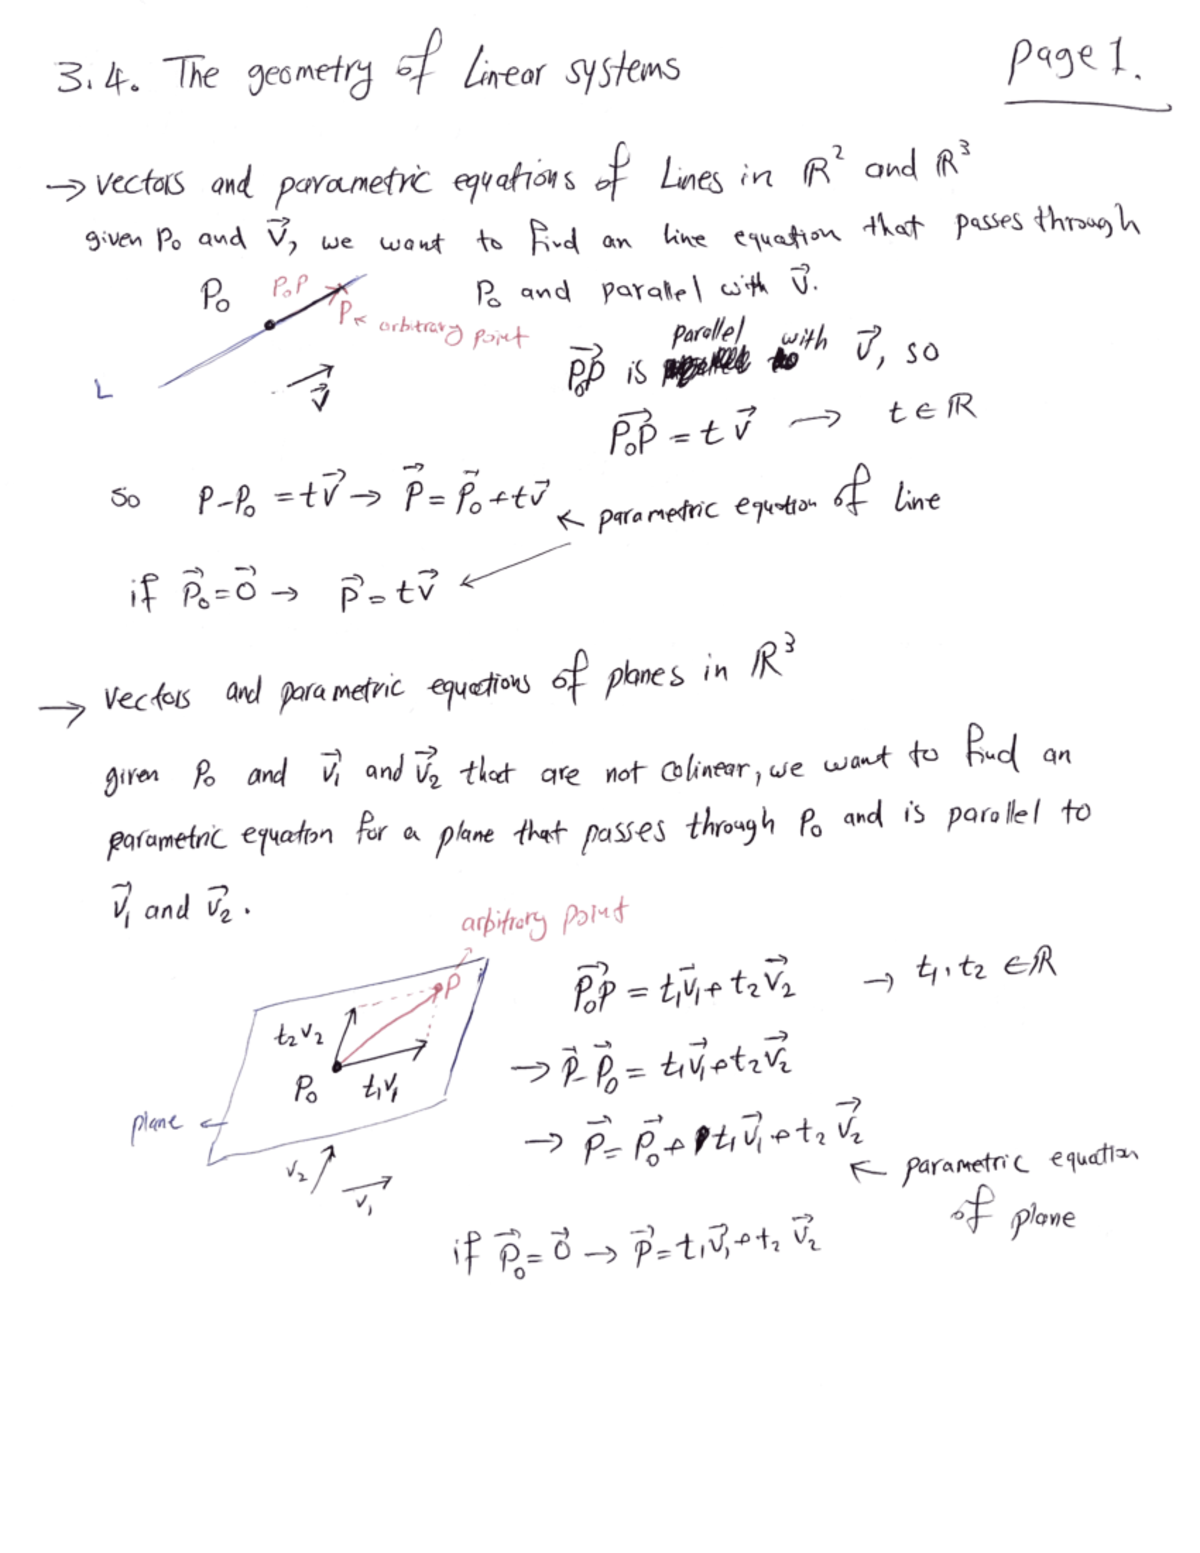 3.4. The geometry of Linear systems
Page 1.
→ vectors and parametric equations of Lines in ℝ² and ℝ³
given P₀ and v⃗, we want to find an line equation that passes through
P₀ and parallel with v⃗.
P₀
P₀P
P ← arbitrary point
L
v⃗
P₀P⃗ is parallel with v⃗, so
P₀P⃗ = t v⃗ → t ∈ ℝ
so P-P₀ = tv⃗ → P⃗ = P⃗₀ + tv⃗
← parametric equation of line
if P⃗₀ = 0⃗ → P⃗ = tv⃗
→ vectors and parametric equations of planes in ℝ³
given P₀ and v⃗₁ and v⃗₂ that are not colinear, we want to find an
parametric equation for a plane that passes through P₀ and is parallel to
v⃗₁ and v⃗₂.
arbitrary point
P
t₂v₂
P₀
t₁v₁
plane ←
v₂
v₁
P₀P⃗ = t₁v⃗₁ + t₂v⃗₂ → t₁, t₂ ∈ ℝ
→ P⃗ - P⃗₀ = t₁v⃗₁ + t₂v⃗₂
→ P⃗ = P⃗₀ + t₁v⃗₁ + t₂v⃗₂
← parametric equation
of plane
if P⃗₀ = 0⃗ → P⃗ = t₁v⃗₁ + t₂v⃗₂